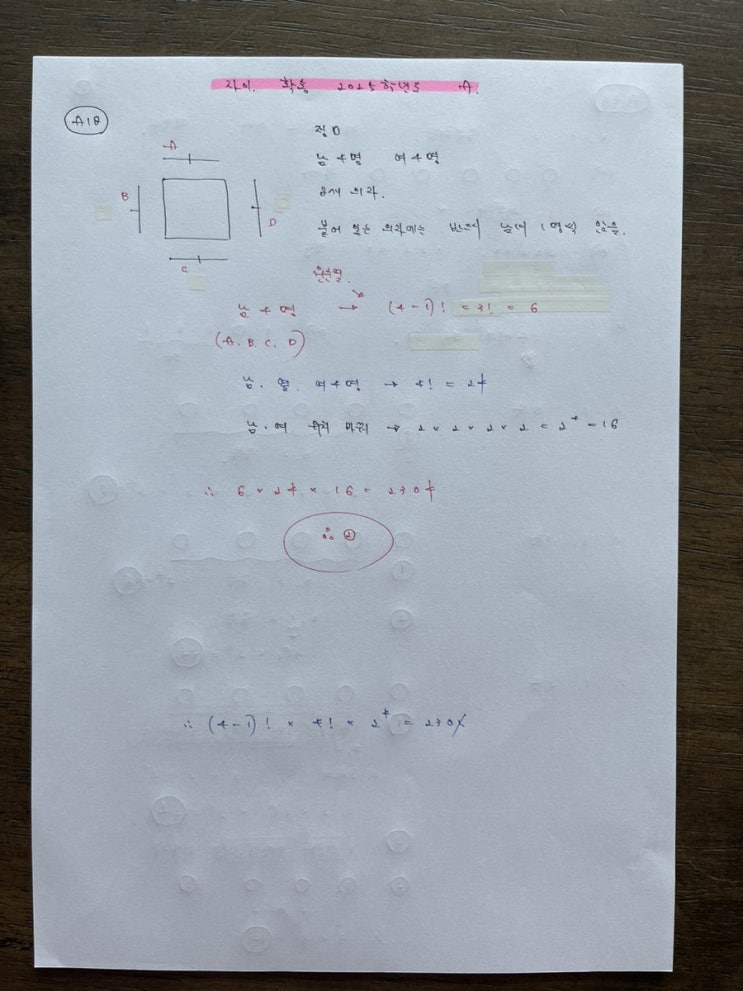 자이. 확통 2025학년도 A.
A18
정 D
남 4명 여 4명
8개 의자.
붙어 있는 의자에는 반드시 남여 1명씩 앉음.
A
B
C
D
원순열
남 4명 → (4-1)! = 3! = 6
(A. B. C. D)
남. 옆. 여 4명 → 4! = 24
남. 여 위치 바뀜 → 2 × 2 × 2 × 2 = 2⁴ = 16
∴ 6 × 24 × 16 = 2304
∴ ②
∴ (4-1)! × 4! × 2⁴ = 2304